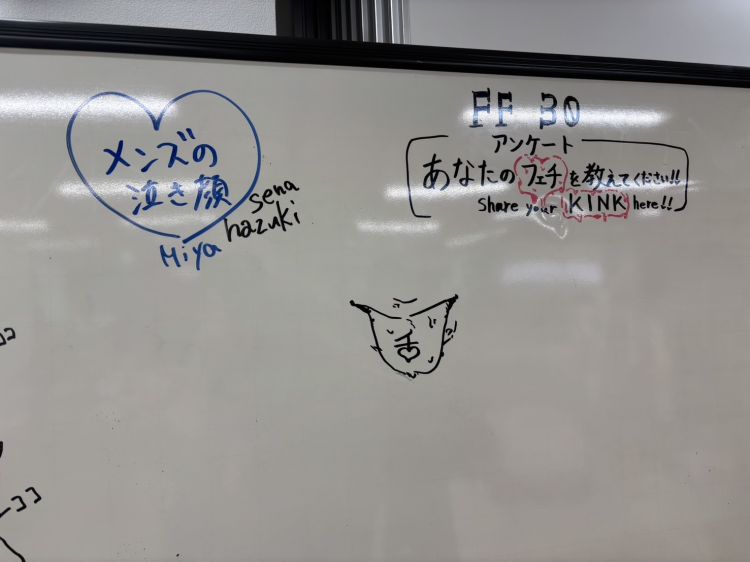 メンズの
泣き顔
Miya
sena
hazuki
FF 30
アンケート
あなたのフェチを教えてください!!
Share your KINK here!!
舌
ココ
ココ